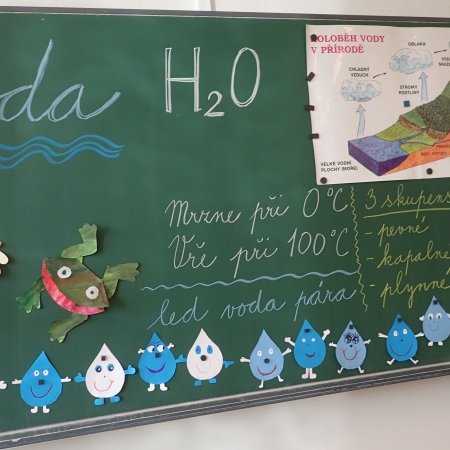 da
H₂O
KOLOBĚH VODY
V PŘÍRODĚ
OBLAKA
CHLADNÝ
VZDUCH
STROMY
ROSTLINY
VELKÉ VODNÍ
PLOCHY (MOŘE)
Mrzne při 0°C
Vře při 100°C
led voda pára
3 skupens
- pevné
- kapalne
- plynné